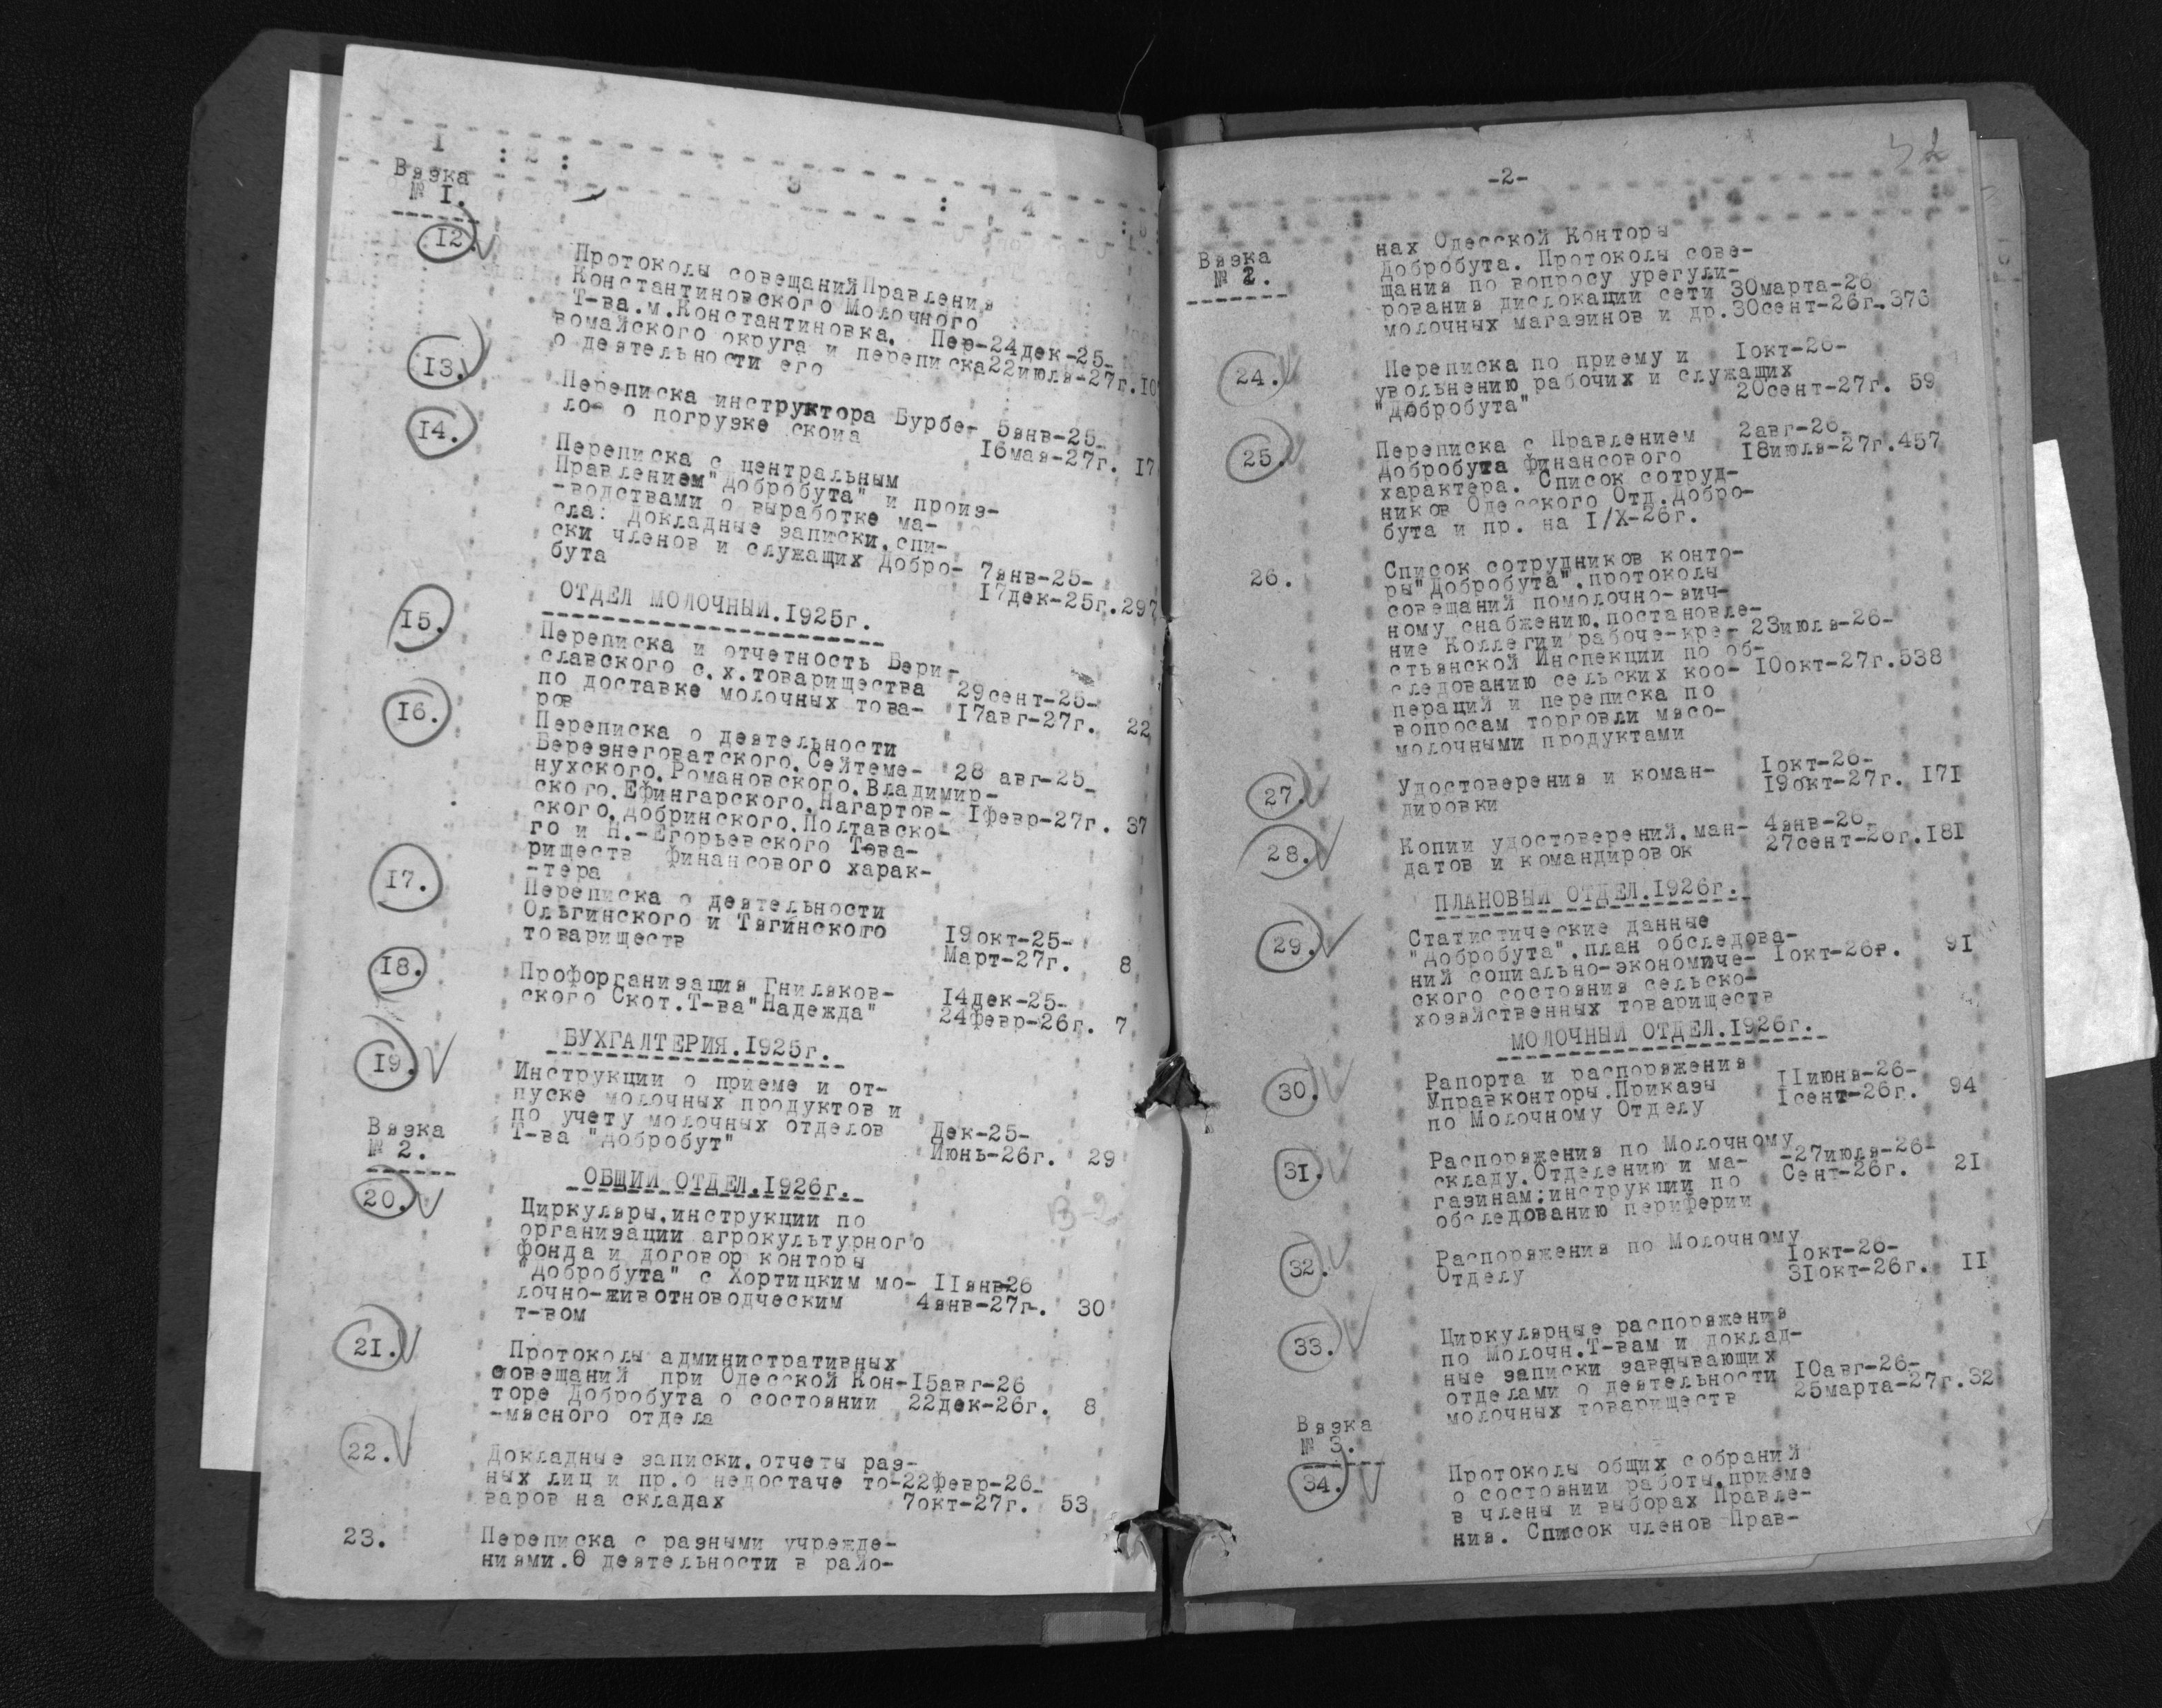 I : 2 : 3 : 4
Вязка
№ I.
I2.
Протоколы совещаний Правления
Константиновского Молочного
Т-ва.м.Константиновка. Пер-24дек-25-
вомайского округа и переписка22июля-27г.10
о деятельности его
I3.
Переписка инструктора Бурбе- 5янв-25-
ло- о погрузке скоиа I6мая-27г. I7
I4.
Переписка с центральным
Правлением"Добробута" и произ-
-водствами о выработке ма-
сла: Докладные записки.спи-
ски членов и служащих Добро- 7янв-25-
бута I7дек-25г.297
ОТДЕЛ МОЛОЧНЫЙ.I925г.
I5.
Переписка и отчетность Бери-
славского с.х.товарищества 29сент-25-
по доставке молочных това- I7авг-27г. 22
ров
I6.
Переписка о деятельности
Березнеговатского.Сейтеме- 28 авг-25-
нухского.Романовского.Владимир-
ского.Ефингарского.Нагартов- Iфевр-27г. 37
ского.Добринского.Полтавско-
го и Н.-Егорьевского Това-
риществ финансового харак-
-тера
I7.
Переписка о деятельности
Ольгинского и Тягинского I9окт-25-
товариществ Март-27г. 8
I8.
Профорганизация Гниляков- I4дек-25-
ского Скот.Т-ва"Надежда" 24февр-26г. 7
БУХГАЛТЕРИЯ.I925г.
I9.
Инструкции о приеме и от-
пуске молочных продуктов и
по учету молочных отделов Дек-25-
Т-ва "Добробут" Июнь-26г. 29
Вязка
№ 2.
ОБЩИЙ ОТДЕЛ.I926г.
20.
Циркуляры.инструкции по
организации агрокультурного
фонда и договор конторы
"Добробута" с Хортицким мо- IIянв-26
лочно-животноводческим 4янв-27г-. 30
т-вом
В-2
21.
Протоколы административных
совещаний при Одесской Кон-I5авг-26
торе Добробута о состоянии 22дек-26г. 8
-мясного отдела
22.
Докладные записки.отчеты раз-
ных лиц и пр.о недостаче то-22февр-26-
варов на складах 7окт-27г. 53
23.
Переписка с разными учрежде-
ниями.О деятельности в райо-
-2-
Вязка
№ 2.
нах Одесской Конторы
Добробута. Протоколы сове-
щания по вопросу урегули-
рования дислокации сети 30марта-26
молочных магазинов и др.30сент-26г-376
24.
Переписка по приему и Iокт-26-
увольнению рабочих и служащих
"Добробута" 20сент-27г. 59
25.
Переписка с Правлением 2авг-26-
Добробута финансового I8июля-27г.457
характера. Список сотруд-
ников Одесского Отд.Добро-
бута и пр. на I/X-26г.
26.
Список сотрудников конто-
ры"Добробута".протоколы
совещаний помолочно-яич-
ному снабжению.постановле-
ние Коллегии рабоче-кре- 23июля-26-
стьянской Инспекции по об-
следованию сельских коо- I0окт-27г.538
пераций и переписка по
вопросам торговли мясо-
молочными продуктами
27.
Удостоверения и коман- Iокт-26-
дировки I9окт-27г. I7I
28.
Копии удостоверений.ман- 4янв-26-
датов и командировок 27сент-26г.I8I
ПЛАНОВЫЙ ОТДЕЛ.I926г.
29.
Статистические данные
"Добробута".план обследова-
ний социально-экономиче- Iокт-26г. 9I
ского состояния сельско-
хозяйственных товариществ
МОЛОЧНЫЙ ОТДЕЛ.I926г.
30.
Рапорта и распоряжения
Управконторы.Приказы IIиюня-26-
по Молочному Отделу Iсент-26г. 94
31.
Распоряжения по Молочному
складу.Отделению и ма- -27июля-26-
газинам:инструкции по Сент-26г. 2I
обследованию периферии
32.
Распоряжения по Молочному
Отделу Iокт-26-
3Iокт-26г. II
33.
Циркулярные распоряжения
по Молочн.Т-вам и доклад-
ные записки заведывающих
отделами о деятельности I0авг-26-
молочных товариществ 25марта-27г.32
Вязка
№ 3.
34.
Протоколы общих собраний
о состоянии работы.приеме
в члены и выборах Правле-
ния. Список членов Прав-